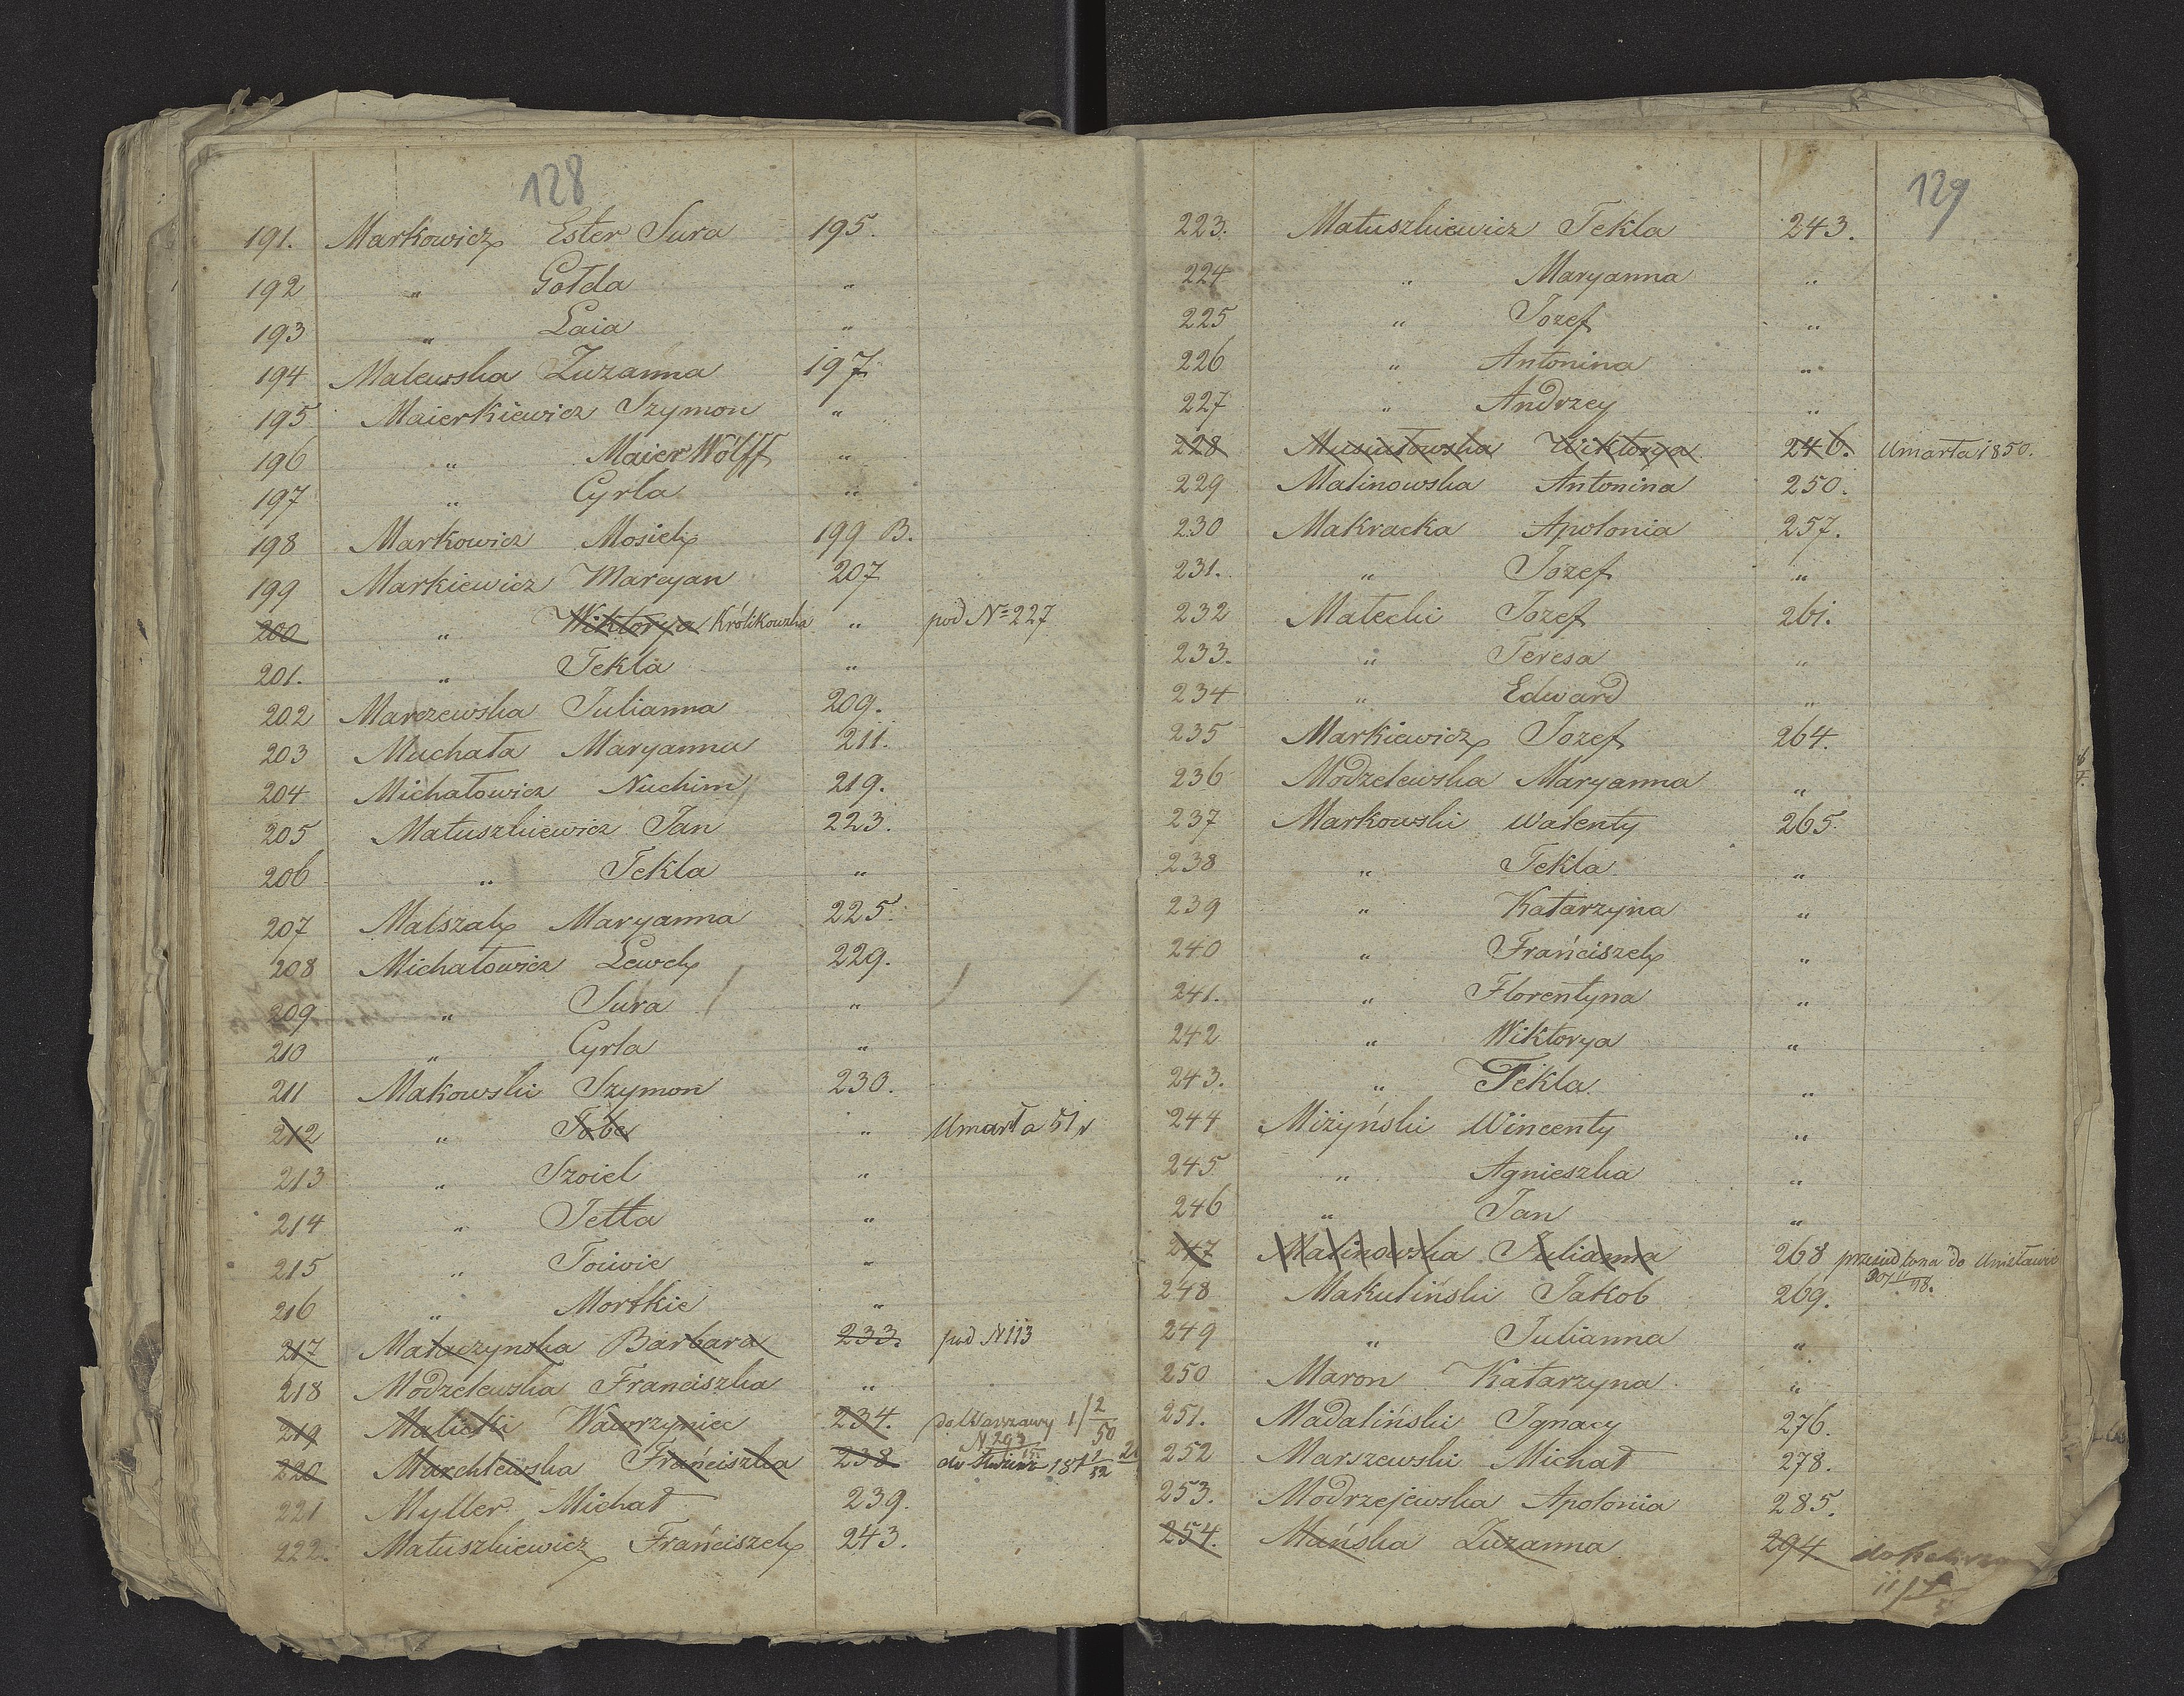 128
191. Markowicz Ester Sura 195.
192 " Gołda "
193 " Łaia "
194 Malewska Zuzanna 197
195 Maierkiewicz Szymon "
196 " Maier Wolff "
197 " Cyrla "
198 Markowicz Mosiek 199 B.
199 Markiewicz Marcyan 207
200 " Wiktorya Królikowska " pod No 227
201. " Tekla "
202 Marczewska Julianna 209.
203 Muchała Maryanna 211.
204 Michałowicz Nuchim 219.
205 Matuszkiewicz Jan 223.
206 " Tekla "
207 Malszak Maryanna 225.
208 Michałowicz Lewek 229.
209 " Sura "
210 " Cyrla "
211 Makowski Szymon 230.
212 " Tobe " Umarła 51 r
213 " Szoiel "
214 " Jetta "
215 " Toiwie "
216 " Mortkie "
217 Małaczynska Barbara 233. pod N 113
218 Modzelewska Franciszka "
219 Malicki Wawrzyniec 234. do Warszawy 1/2 50
220 Marchlewska Franciszka 238 N 293 do
221 Myller Michał 239.
222. Matuszkiewicz Franciszek 243.
129
223. Matuszkiewicz Tekla 243.
224 " Maryanna "
225 " Jozef "
226 " Antonina "
227 " Andrzey "
228 Musiałowska Wiktorya 246. Umarła 1850.
229 Malinowska Antonina 250.
230 Makracka Apolonia 257.
231. " Jozef "
232 Małecki Jozef 261.
233. " Teresa "
234 " Edward "
235 Markiewicz Jozef 264.
236 Modzelewska Maryanna "
237 Markowski Walenty 265.
238 " Tekla "
239 " Katarzyna "
240 " Franciszek "
241. " Florentyna "
242 " Wiktorya "
243. " Tekla "
244 Miżyński Wincenty "
245 " Agnieszka "
246 " Jan "
247 Malinowska Julianna 268 do Unisławic
248 Makuliński Jakob 269.
249 " Julianna "
250 Maron Katarzyna "
251. Madaliński Ignacy 276.
252 Marszewski Michał 278.
253. Modrzejewska Apolonia 285.
254. Mańska Zuzanna 294 do